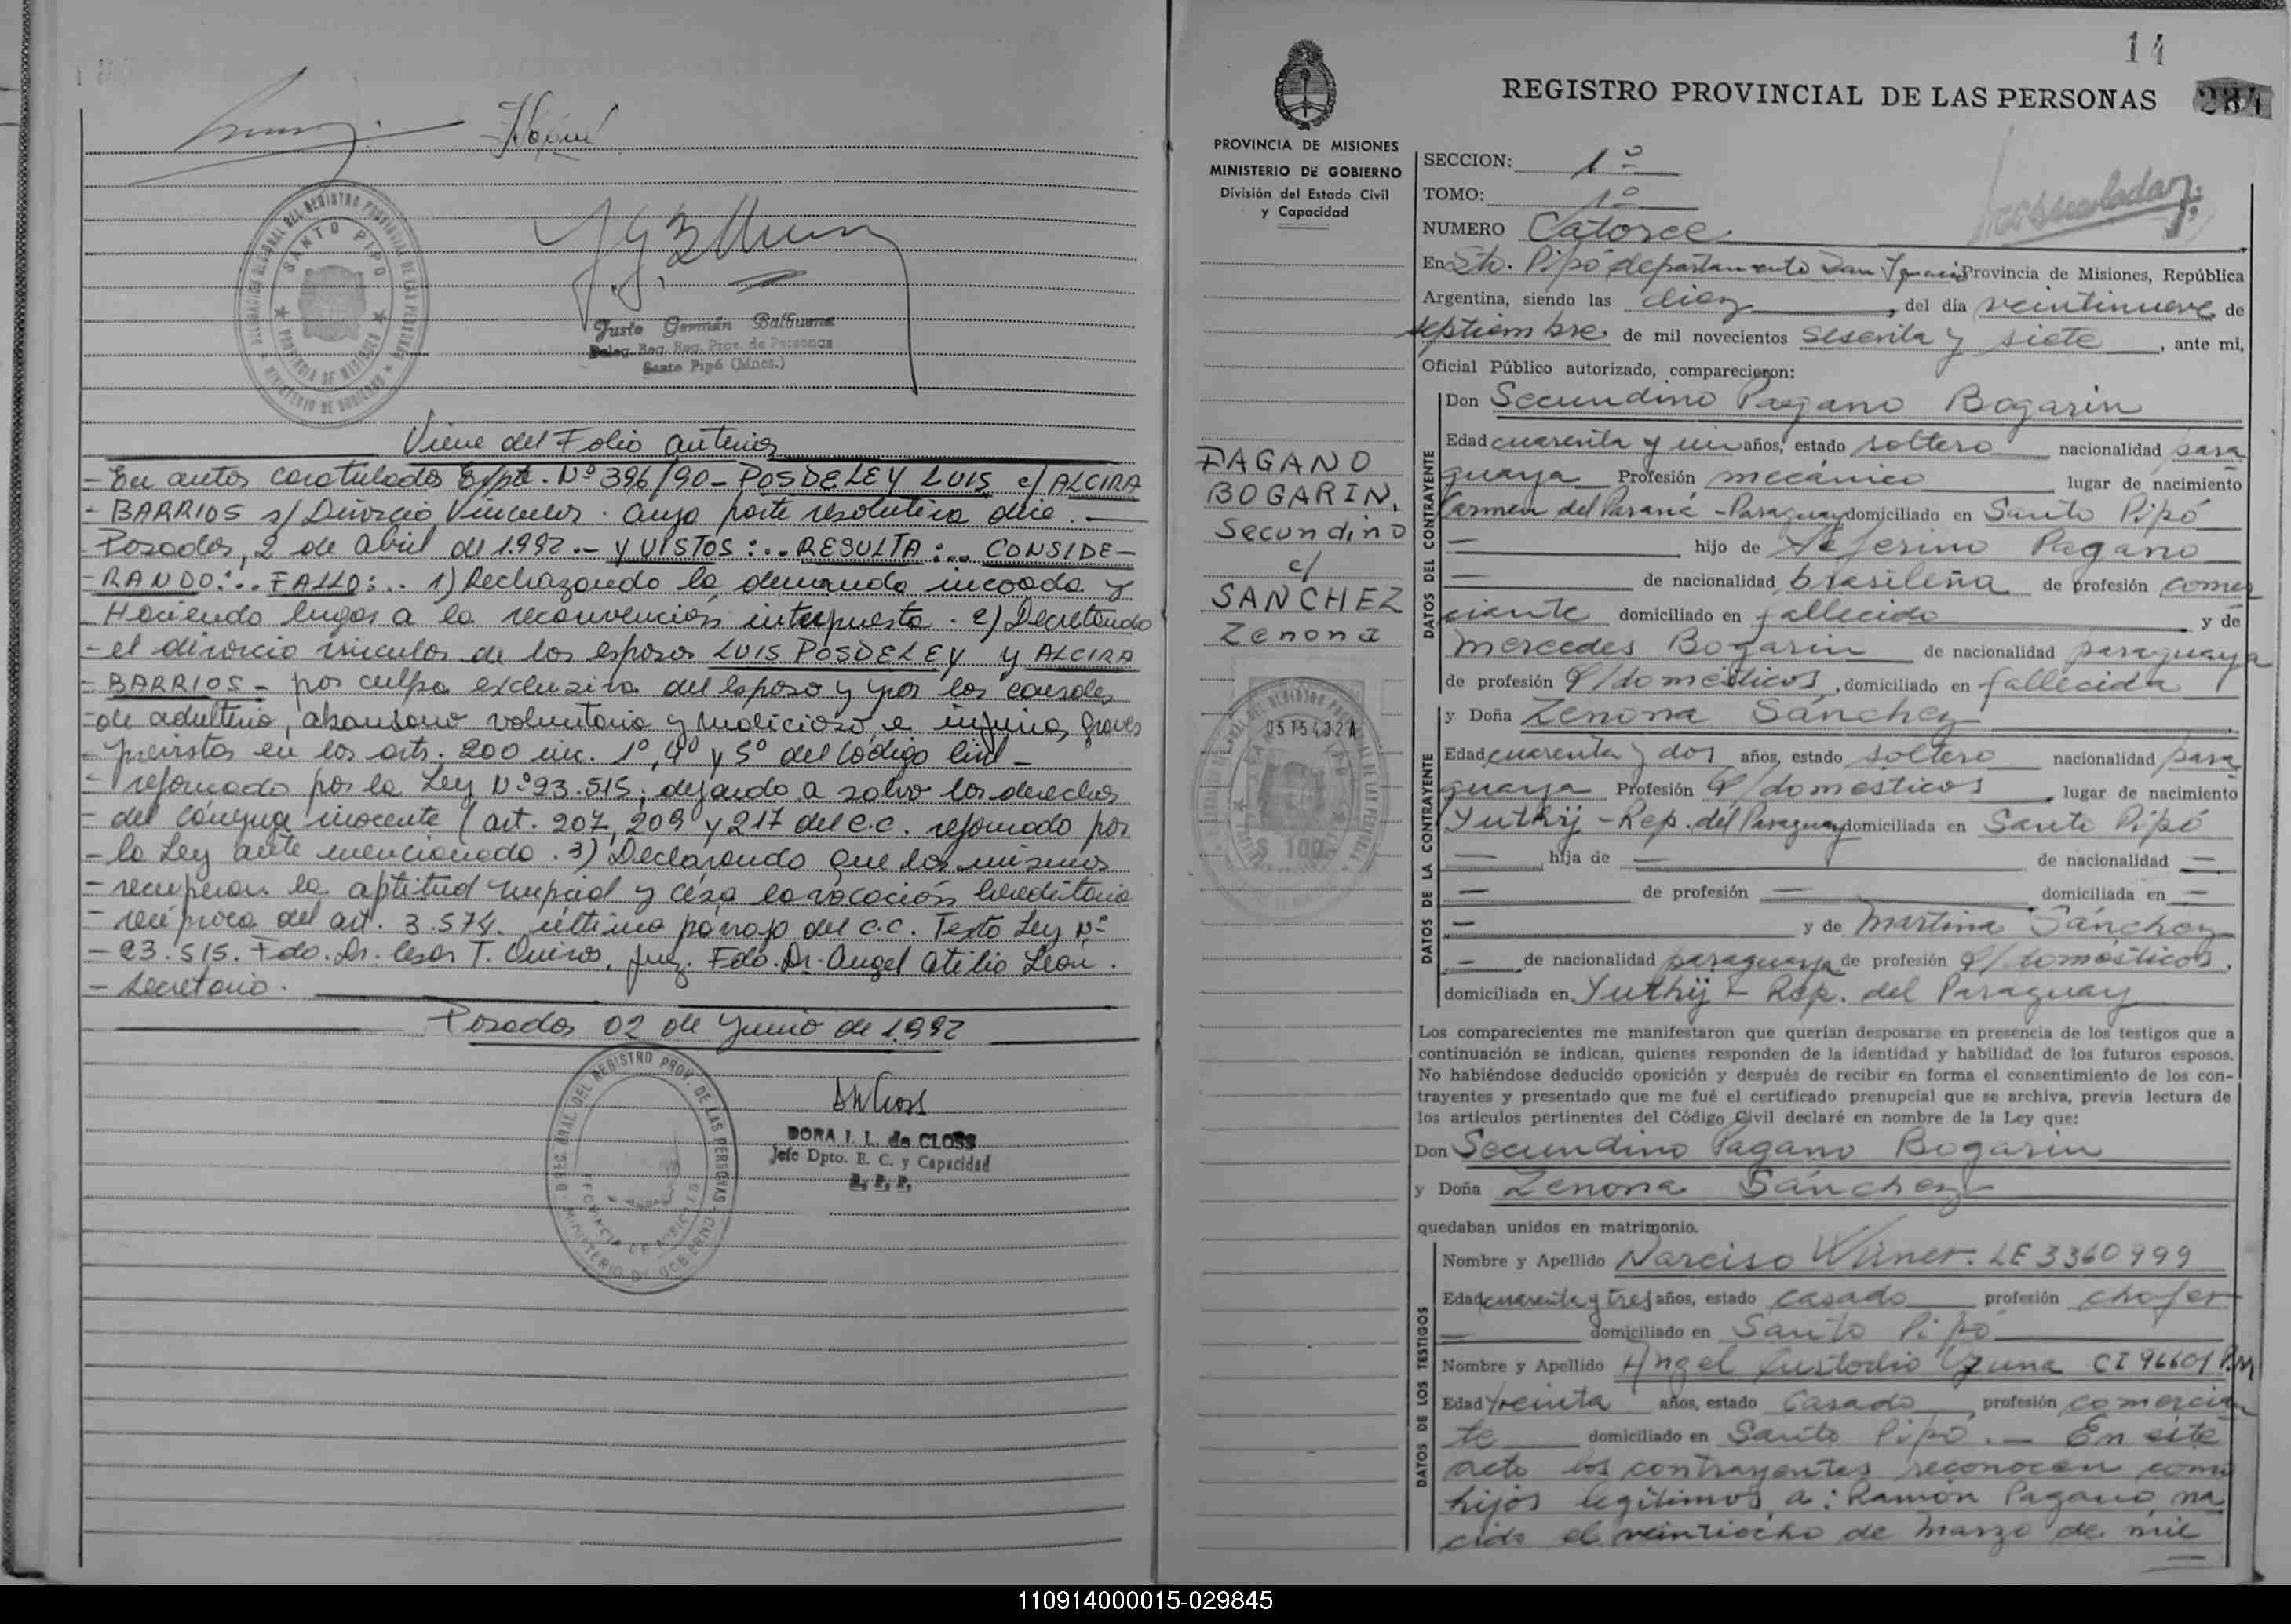 DELEGACION REGIONAL DEL REGISTRO PROVINCIAL DE LAS PERSONAS
SANTO PIPO
PROVINCIA DE MISIONES
MINISTERIO DE GOBIERNO
Justo Germán Balbuena
Deleg. Reg. Reg. Prov. de Personas
Santo Pipó (Mnes.)
Viene del Folio anterior
- En autos caratulados Expte. Nº 396/90 - POSDELEY LUIS c/ ALCIRA
- BARRIOS s/ Divorcio Vincular. cuya parte resolutiva dice. -
Posadas, 2 de abril de 1.992.- Y VISTOS:.. RESULTA:... CONSIDE-
- RANDO:.. FALLO:.. 1) Rechazando la demanda incoada y
- Haciendo lugar a la reconvención interpuesta. 2) Decretando
- el divorcio vincular de los esposos LUIS POSDELEY y ALCIRA
- BARRIOS - por culpa exclusiva del esposo y por las causales
- de adulterio, abandono voluntario y malicioso, e injurias graves
- previstas en los arts. 200 inc. 1º, 4º y 5º del código Civil -
- reformado por la Ley Nº 23.515; dejando a salvo los derechos
- del cónyuge inocente (art. 207, 209 y 217 del C.C. reformado por
- la Ley ante mencionado. 3) Declarando que los mismos
- recuperan la aptitud nupcial y cesa la vocación hereditaria
- recíproca del art. 3.574. último párrafo del C.C. Texto Ley Nº
- 23.515. Fdo. Dr. Cesar T. Quiros, Juez. Fdo. Dr. Angel Atilio Leon.
- Secretario.
Posadas 02 de Junio de 1.992
DORA I. L. de CLOSS
Jefe Dpto. E. C. y Capacidad
R. P. P.
14
REGISTRO PROVINCIAL DE LAS PERSONAS
284
PROVINCIA DE MISIONES
MINISTERIO DE GOBIERNO
División del Estado Civil
y Capacidad
SECCION: 1º
TOMO: 1º
NUMERO Catorce
En Sto. Pipó departamento San Ignacio Provincia de Misiones, República
Argentina, siendo las diez, del día veintinueve de
septiembre de mil novecientos sesenta y siete, ante mi,
Oficial Público autorizado, comparecieron:
PAGANO
BOGARIN,
Secundino
c/
SANCHEZ
Zenona
0515432A
$ 100
DATOS DEL CONTRAYENTE
Don Secundino Pagano Bogarin
Edad cuarenta y un años, estado soltero nacionalidad para
guaya Profesión mecánico lugar de nacimiento
Carmen del Paraná - Paraguay domiciliado en Santo Pipó
hijo de Seferino Pagano
de nacionalidad brasileña de profesión comer
ciante domiciliado en fallecido y de
Mercedes Bogarin de nacionalidad paraguaya
de profesión q/domésticos, domiciliado en fallecida
DATOS DE LA CONTRAYENTE
y Doña Zenona Sánchez
Edad cuarenta y dos años, estado soltera nacionalidad para
guaya Profesión q/domésticos, lugar de nacimiento
Yuthÿ - Rep. del Paraguay domiciliada en Santo Pipó
hija de — de nacionalidad —
— de profesión — domiciliada en —
— y de Martina Sánchez
— de nacionalidad paraguaya de profesión q/domésticos,
domiciliada en Yuthÿ - Rep. del Paraguay
Los comparecientes me manifestaron que querían desposarse en presencia de los testigos que a
continuación se indican, quienes responden de la identidad y habilidad de los futuros esposos.
No habiéndose deducido oposición y después de recibir en forma el consentimiento de los con-
trayentes y presentado que me fué el certificado prenupcial que se archiva, previa lectura de
los artículos pertinentes del Código Civil declaré en nombre de la Ley que:
Don Secundino Pagano Bogarin
y Doña Zenona Sánchez
quedaban unidos en matrimonio.
DATOS DE LOS TESTIGOS
Nombre y Apellido Narciso LE 3360999
Edad cuarenta y tres años, estado casado profesión chofer
— domiciliado en Santo Pipó
Nombre y Apellido Angel Custodio Ozuna CI 96601 P.M
Edad treinta años, estado Casado profesión comercian
te domiciliado en Santo Pipó. — En este
acto los contrayentes reconocen como
hijos legítimos a: Ramón Pagano na
cido el veintiocho de Marzo de mil
110914000015-029845